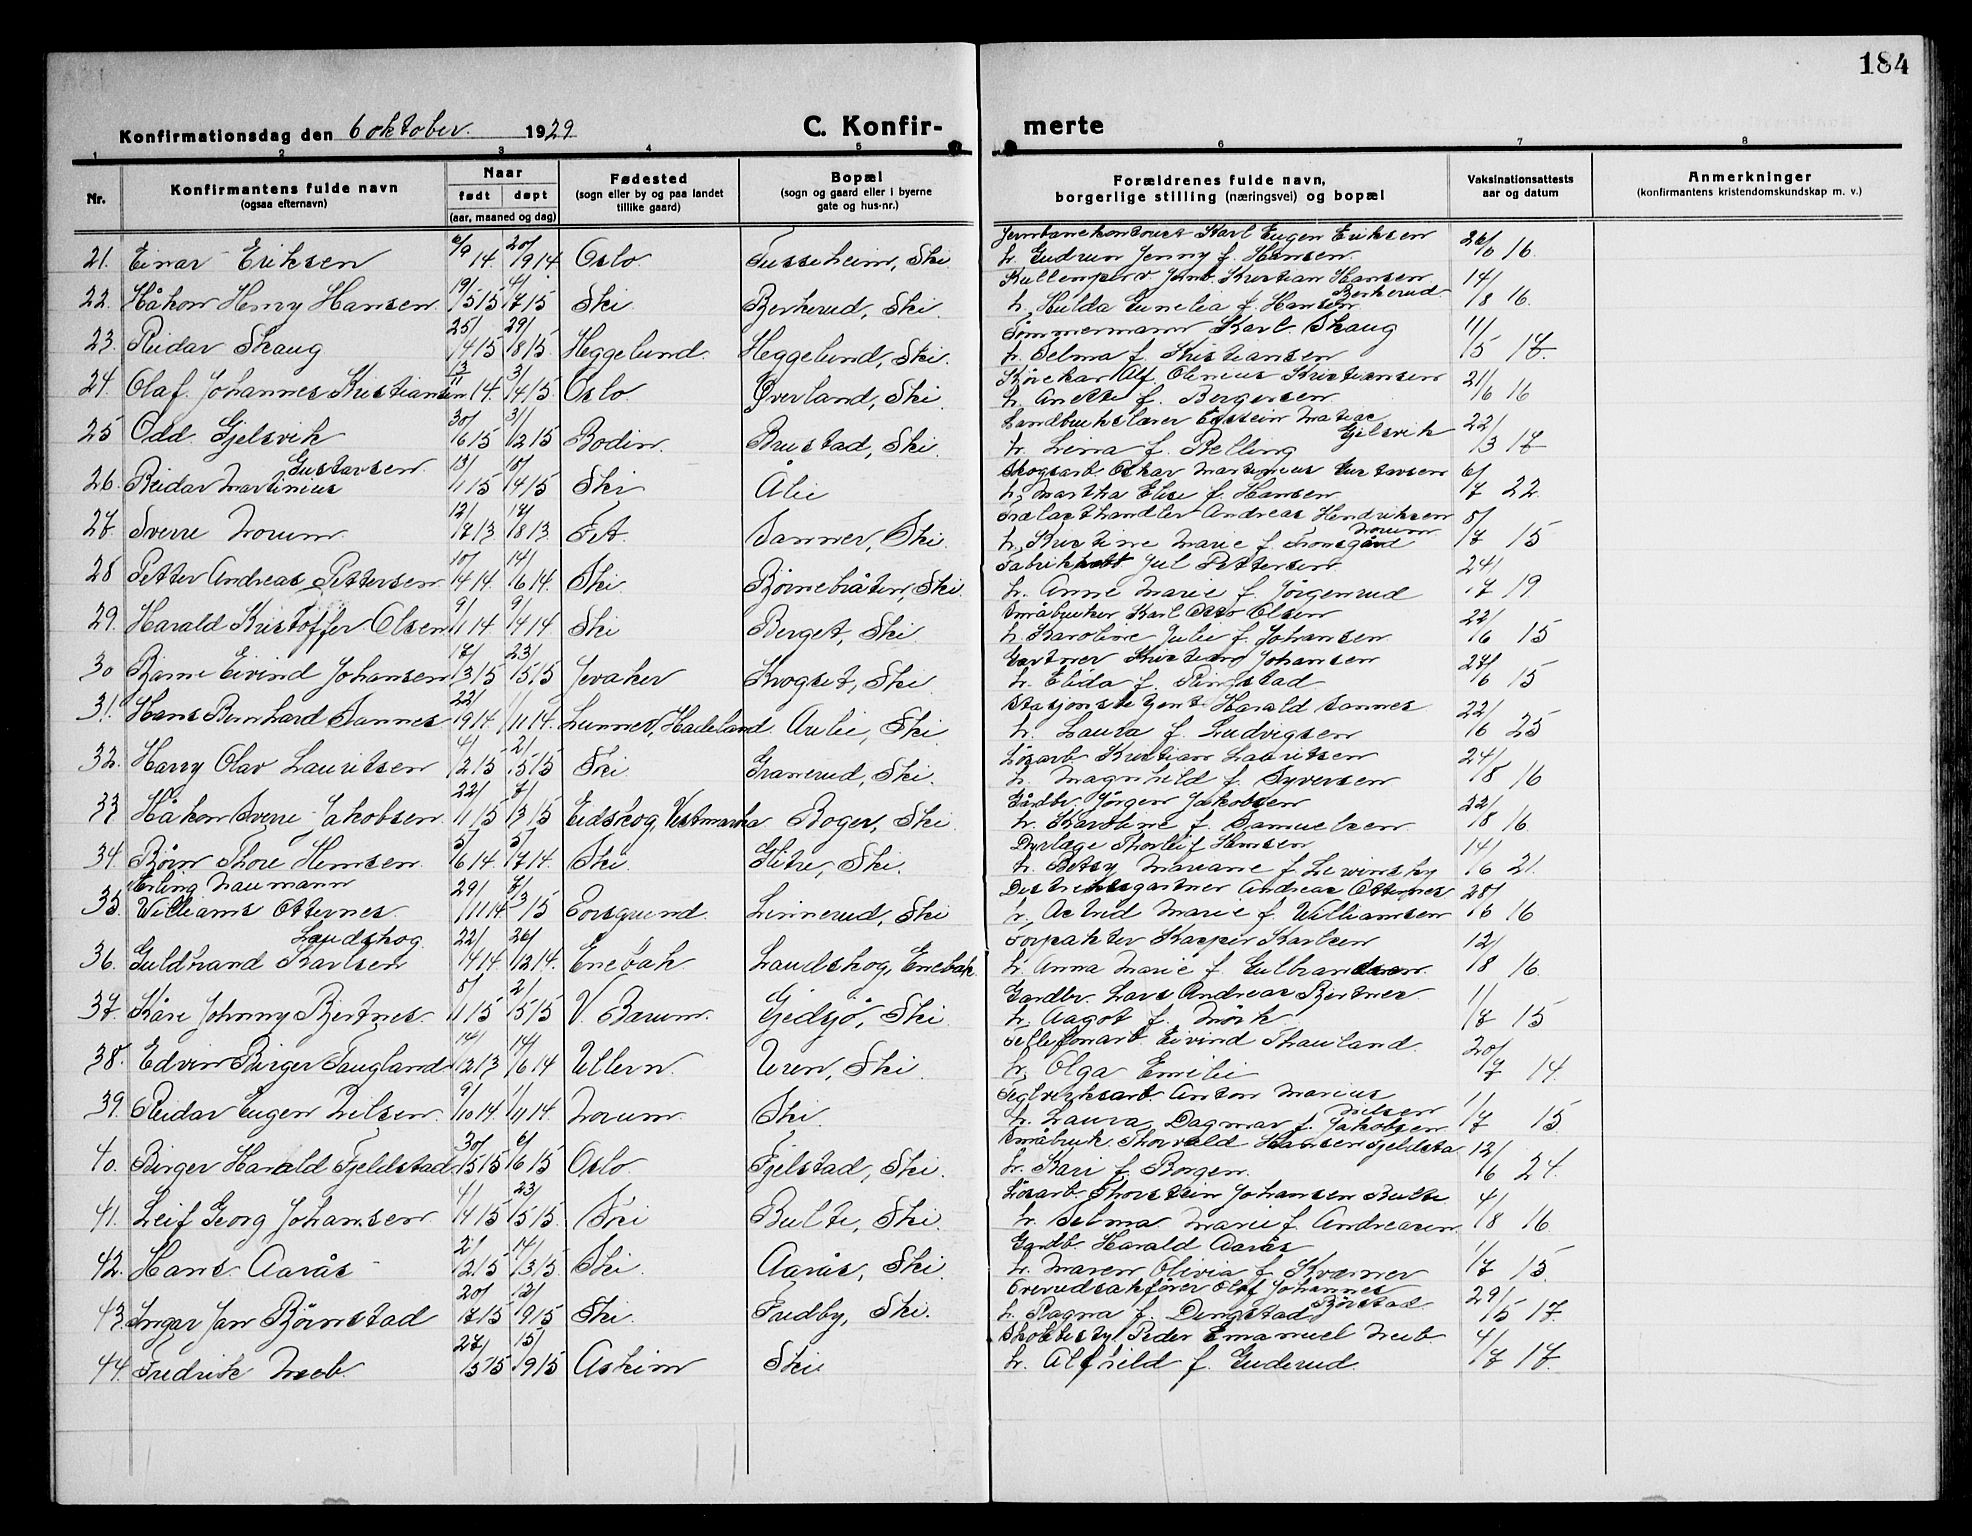 184
Konfirmationsdag den 6 oktober 1929 C. Konfir- merte
1 2 3 4 5 6 7 8
Nr. Konfirmantens fulde navn (ogsaa efternavn) Naar født døpt (aar, maaned og dag) Fødested (sogn eller by og paa landet tillike gaard) Bopæl (sogn og gaard eller i byerne gate og hus-nr.) Forældrenes fulde navn, borgerlige stilling (næringsvei) og bopæl Vaksinationsattests aar og datum Anmerkninger (konfirmantens kristendomskundskap m. v.)
Karl Eugen Eriksen
21. Einar Eriksen 6/9 14. 20/9 14 Oslo Tusseheim, Ski h. Gudrun Jenny f. Hansen 16
Kristian Hansen Berkerud
22. Håkon Henry Hansen 19/5 15 4/7 15 Ski Berkerud, Ski h. Hulda f. Hansen 14/8 16.
Tømmermann Karl Skaug
23. Reidar Skaug 25/4 15 29/8 15 Heggelund Heggelund, Ski. h. Selma f. Kristiansen 11/5 17.
Alf Olenius Kristiansen
24. Olaf Johannes Kristiansen 13/11 14. 3/4 15 Oslo Øverland, Ski h. Anette f. Bergersen 21/6 16
Gjelsvik
25 Odd Gjelsvik 30/6 15 31/12 15 Bodin Brustad, Ski. h. Lina f. Relling 22/3 17
Gustavsen Skogsarb. Oskar Martinius Gustavsen
26. Reidar Martinius 13/1 15 15 Ski Ålie h. Martha Elise f. Hansen 6/7 22.
Trælasthandler Andreas Hendriksen Norum
27. Sverre Norum 12/7 13 17/8 13 Fet Sanner, Ski. h. Kristine Marie f. Tronsgård 15
Jul Pettersen
28 Petter Andreas Pettersen 10/4 14. 14/6 14 Ski Bjørnebråten, Ski h. Anne Marie f. Jörgenrud 24/7 19
Småbruker Karl Otto Olsen
29. Harald Kristoffer Olsen 9/1 14 9/4 14 Ski Berget, Ski h. Karoline Julie f. Johansen 22/6 15
Gartner Kristian Johansen
30 Bjarne Eivind Johansen 17/3 15 23/5 15 Jevaker Krogset, Ski h. Elida f. Ringstad 15
Harald Sannes
31. Hans Bernhard Sannes 22/9 14 1/11 14. Lunner, Hadeland Aulie, Ski h. Laura f. Ludvigsen 22/6 25
Løsarb Kristian Lauritsen
32. Harry Olav Lauritsen 4/2 15 2/5 15 Ski Granerud, Ski h. Magnhild f. Syversen 24/8 16
Gårdbr. Jörgen Jakobsen
33 Håkon Sverre Jakobsen 22/1 15 7/3 15 Eidskog, Vestmarka Roger, Ski h. Karoline f. Samuelsen 22/8 16.
Dyrlæge Thorleif Hemsen
34. Børn Thore Hemsen 5/6 14. 5/7 14. Ski. Glitre, Ski. h. Betsy Mariane f. Levinsky 14/6 21.
Erling Naumann Andreas Otternes
35. Williams Otternes 29/11 14 7/3 15 Porsgrund Linnerud, Ski h. Astrid Marie f. Williamsen 16
Landskog Torpakter Kasper Karlsen
36. Guldbrand Karlsen 22/4 14 26/12 14. Enebak Landskog, Enebak h. Anna Marie f. Gulbrandsen 12/8 16
Gardbr. Lars Andreas Bjertnes
37 Kåre Johnny Bjertnes 5/1 15 2/5 15 V. Bærum Gjedsjø, Ski h. Aagot f. Mörk 15
Tellefonarb Eivind Thauland
38. Edvin Birger Taugland 14/12 13 14/6 14 Ullern Uren, Ski h. Olga Emilie 20/7 14.
Teglverksarb. Anton Marius Nilsen
39. Reidar Eugen Nilsen 9/10 14. 1/11 14. Norum Ski h. Laura Dagmar f. Jakobsen 1/7 15
Småbruk. Thorvald Hansen Fjeldsta
40. Birger Harald Fjeldstad 30/5 15 6/6 15 Oslo Fjelstad, Ski. h. Kari f. Borgen. 12/6 24.
Løsarb. Thorstein Johansen Bulte
41. Leif Georg Johansen 4/4 15 23/5 15. Ski Bulte, Ski h. Selma Marie f. Andreasen 4/8 16
Gardb. Harald Aarås
42. Hans Aarås 2/2 15 14/3 15. Ski Aarås, Ski h. Maren Olivia f. Kværner 1/7 15
Overrudsakfører Olaf Johannes Børnstad
43. Ingar Jan Børnstad 20/7 15 12/9 15 Ski Fudby, Ski. h. Ragna f. Dingstad 29/5 17.
Peder Emanuel Neeb
44. Fredrik Neeb 27/5 15 15/9 15 Askim Ski h. Alfhild f. Guderud 4/7 17.